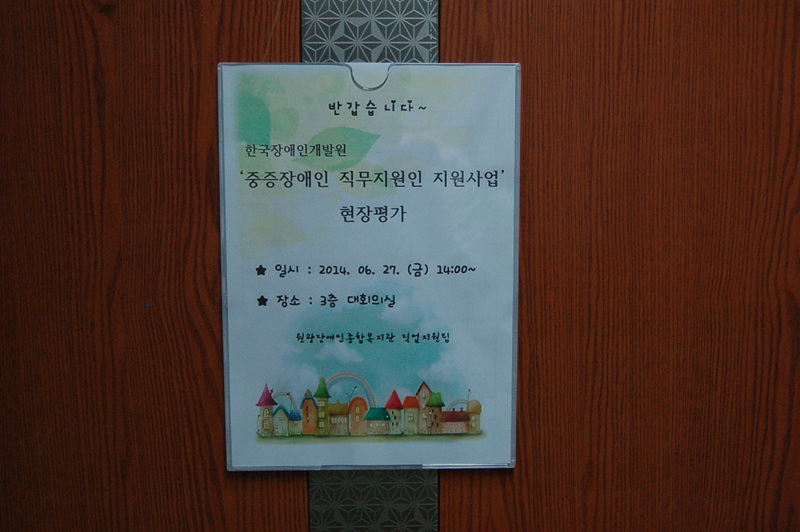 반갑습니다~
한국장애인개발원
'중증장애인 직무지원인 지원사업'
현장평가
★ 일시 : 2014. 06. 27. (금) 14:00~
★ 장소 : 3층 대회의실
원광장애인종합복지관 직업지원팀